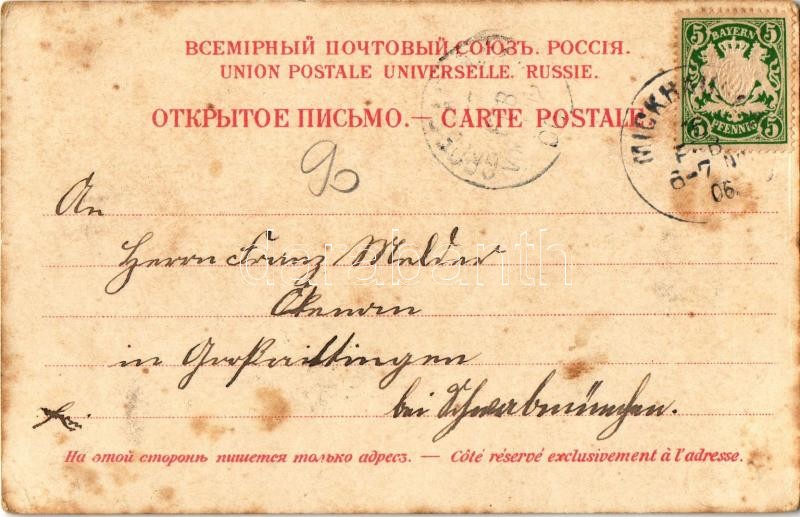 ВСЕМIРНЫЙ ПОЧТОВЫЙ СОЮЗЪ. РОССIЯ.
UNION POSTALE UNIVERSELLE. RUSSIE.
ОТКРЫТОЕ ПИСЬМО.— CARTE POSTALE
5 BAYERN 5
5 PFENNIG 5
MICKH
7
06
90
An
Herrn Franz Melder
Ökonom
in Großaitingen
bei Schwabmünchen.
darabanth
На этой сторонѣ пишется только адресъ. — Côté réservé exclusivement à l'adresse.